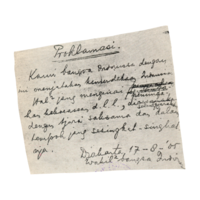 Proklamasi.
Kami bangsa Indonesia dengan
ini menjatakan kemerdekaan Indonesia
Hal2 jang mengenai
kekoeasaan d.l.l.,
dengan tjara saksama dan dalam
tempoh jang sesingkat-singkat
nja.
Djakarta, 17-8-'05
Wakil2 bangsa Indon